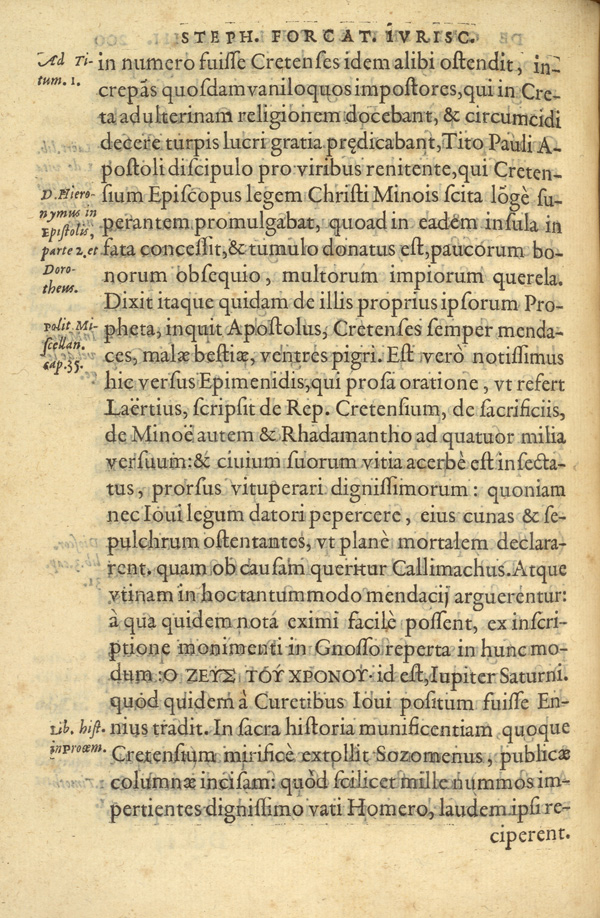 STEPH. FORCAT. IVRISC.
Ad Ti-
tum. 1.
in numero fuiſſe Cretenſes idem alibi oſtendit, in-
crepãs quoſdam vaniloquos impoſtores, qui in Cre-
ta adulterinam religionem docebant, & circumcidi
decere turpis lucri gratia prędicabant, Tito Pauli A-
poſtoli diſcipulo pro viribus renitente, qui Creten-
D. Hiero-
nymus in
Epiſtolis,
parte 2. et
Doro-
theus.
ſium Epiſcopus legem Chriſti Minois ſcita lõgè ſu-
perantem promulgabat, quoad in eadem inſula in
fata conceſſit, & tumulo donatus eſt, paucorum bo-
norum obſequio, multorum impiorum querela.
Dixit itaque quidam de illis proprius ipſorum Pro-
polit. Mi-
ſcellan.
cap. 35.
pheta, inquit Apoſtolus, Cretenſes ſemper menda-
ces, malæ beſtiæ, ventres pigri. Eſt verò notiſſimus
hic verſus Epimenidis, qui proſa oratione, vt refert
Laërtius, ſcripſit de Rep. Cretenſium, de ſacrificiis,
de Minoë autem & Rhadamantho ad quatuor milia
verſuum: & ciuium ſuorum vitia acerbè eſt inſecta-
tus, prorſus vituperari digniſſimorum: quoniam
nec Ioui legum datori pepercere, eius cunas & ſe-
pulchrum oſtentantes, vt planè mortalem declara-
rent. quam ob cauſam queritur Callimachus. Atque
vtinam in hoc tantummodo mendacij arguerentur:
à qua quidem notá eximi facilè poſſent, ex inſcri-
ptione monimenti in Gnoſſo reperta in hunc mo-
dum: Ο ΖΕΥΣ ΤΟΥ ΧΡΟΝΟΥ. id eſt, Iupiter Saturni.
quòd quidem à Curetibus Ioui poſitum fuiſſe En-
Lib. hiſt.
in proœm.
nius tradit. In ſacra hiſtoria munificentiam quoque
Cretenſium mirificè extollit Sozomenus, publicæ
columnæ inciſam: quòd ſcilicet mille nummos im-
pertientes digniſſimo vati Homero, laudem ipſi re-
ciperent.